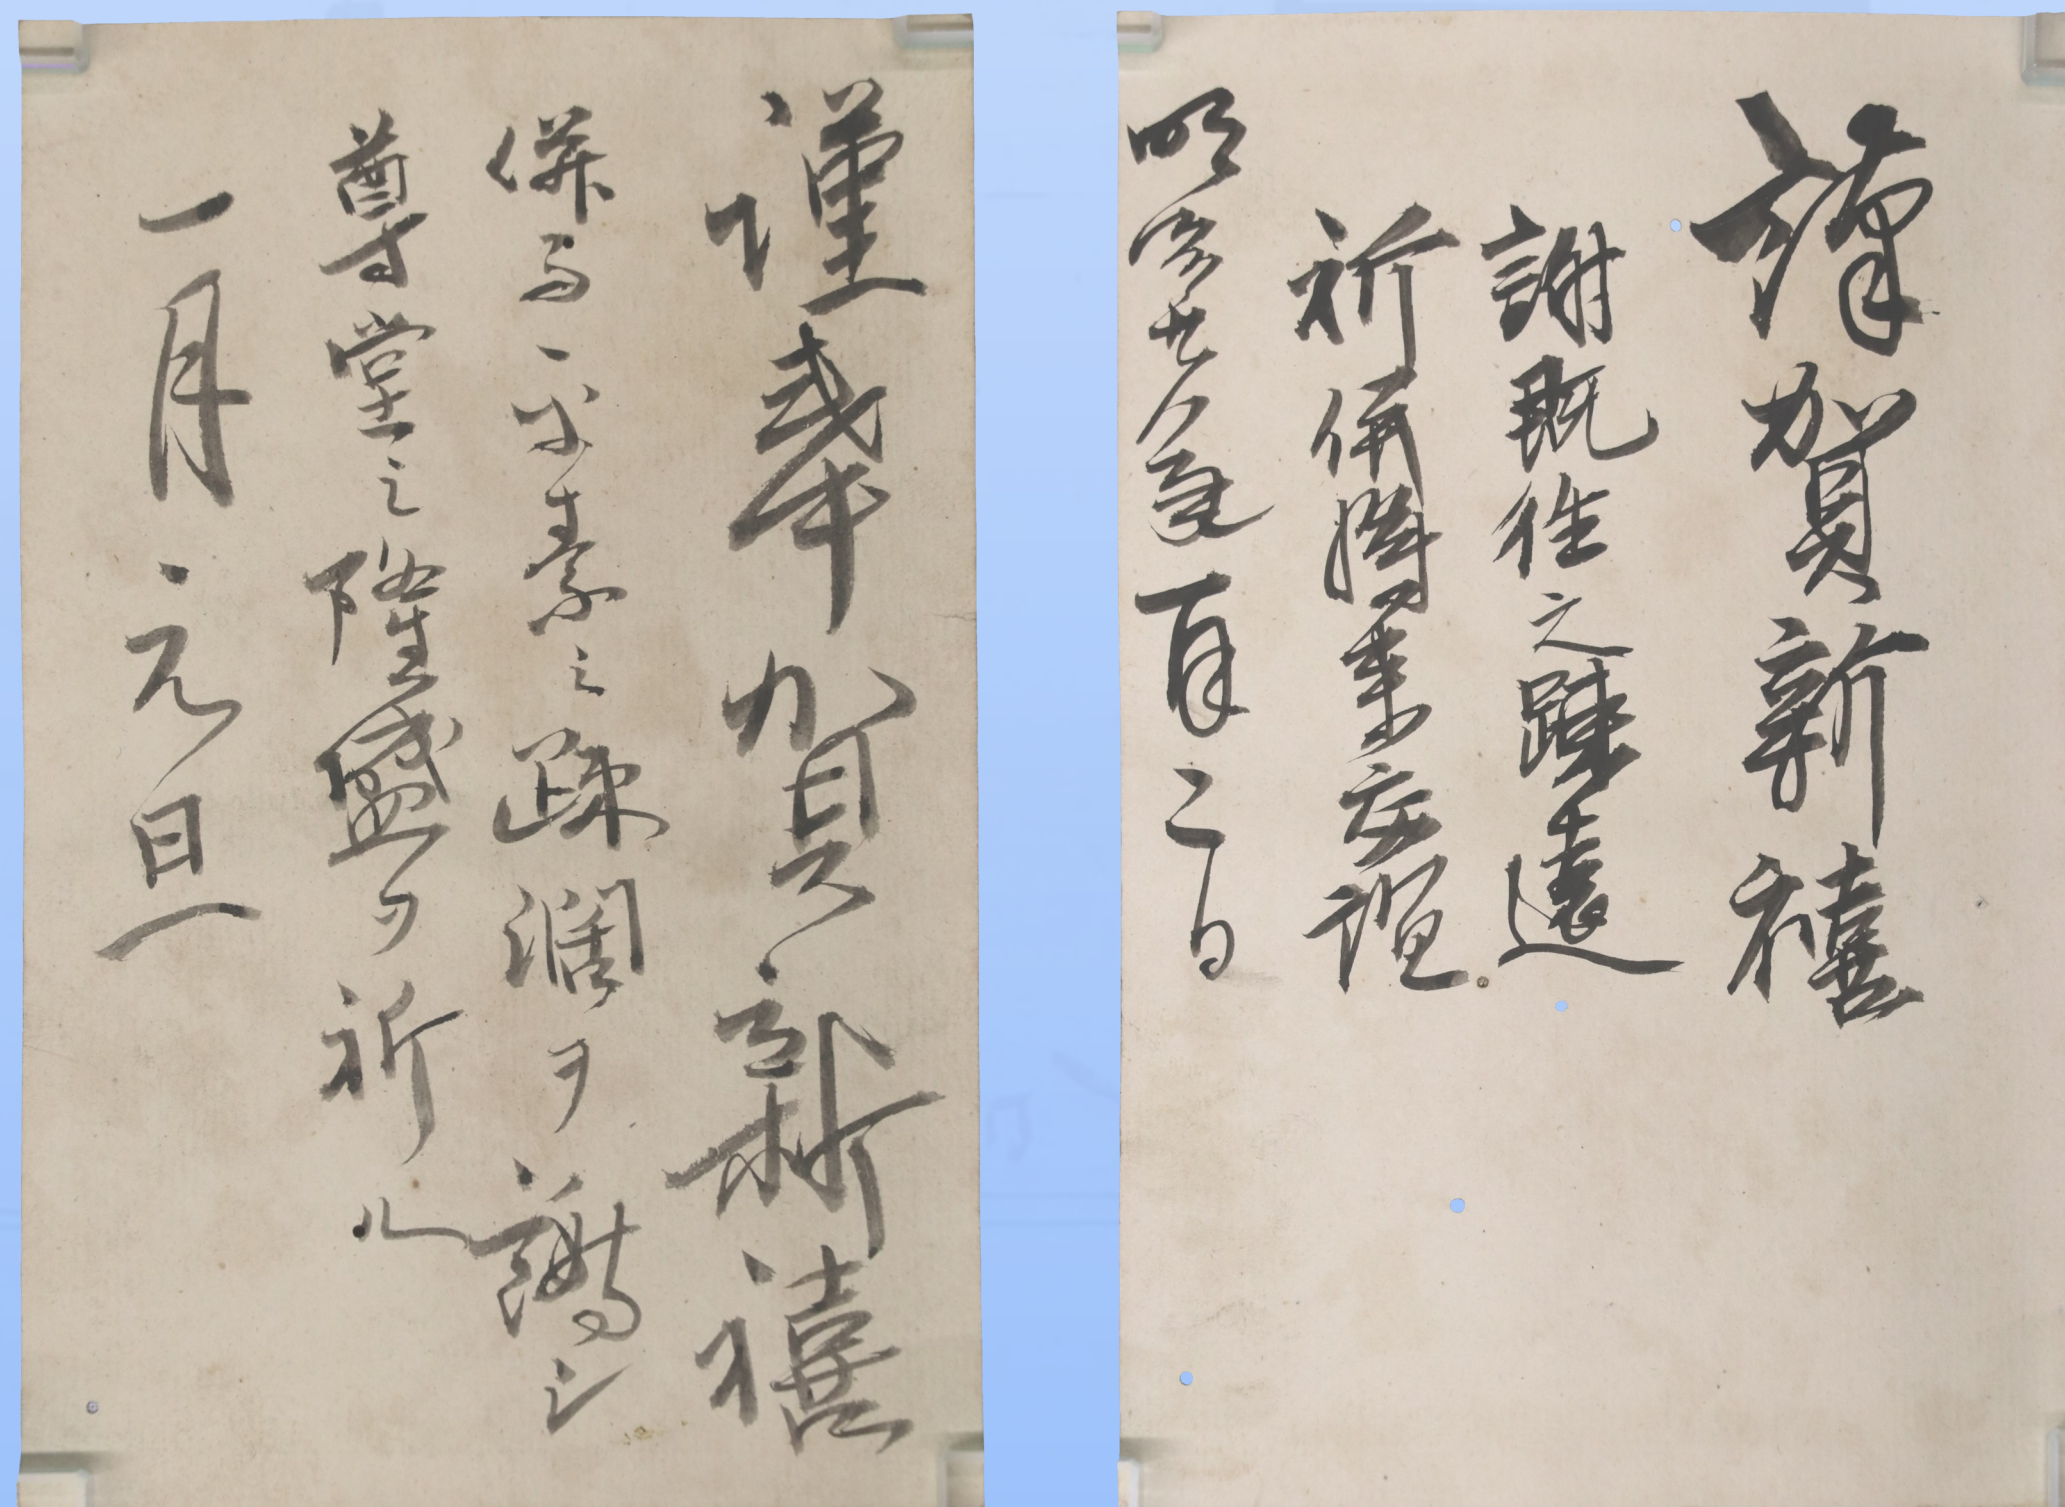 謹賀新禧
謝既往之踈遠
祈併將来交誼
明治廿八年一月二日
謹奉賀新禧
併而平素之踈濶ヲ謝シ
尊堂之隆盛ヲ祈ル
一月元旦